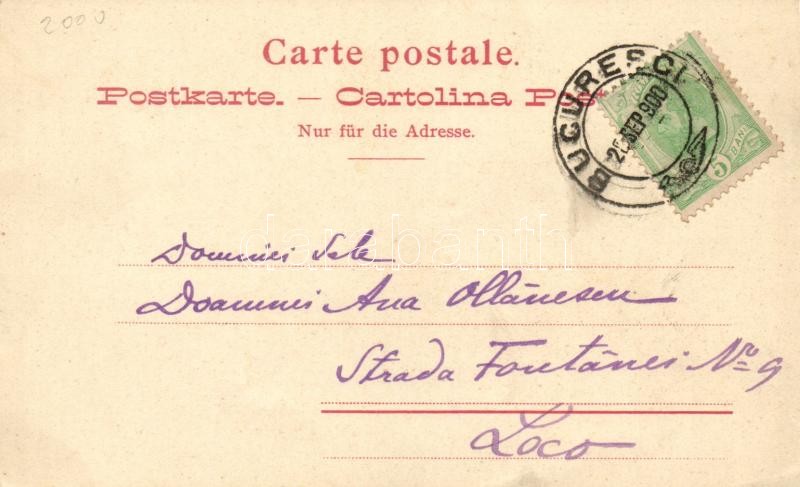 2000
Carte postale.
Postkarte. — Cartolina Post
Nur für die Adresse.
BUCURESCI
25 SEP 900
5 BANI 5
darabanth
Domniei Sale
Doamnei Ana Ollănescu
Strada Fontânei No 9
Loco